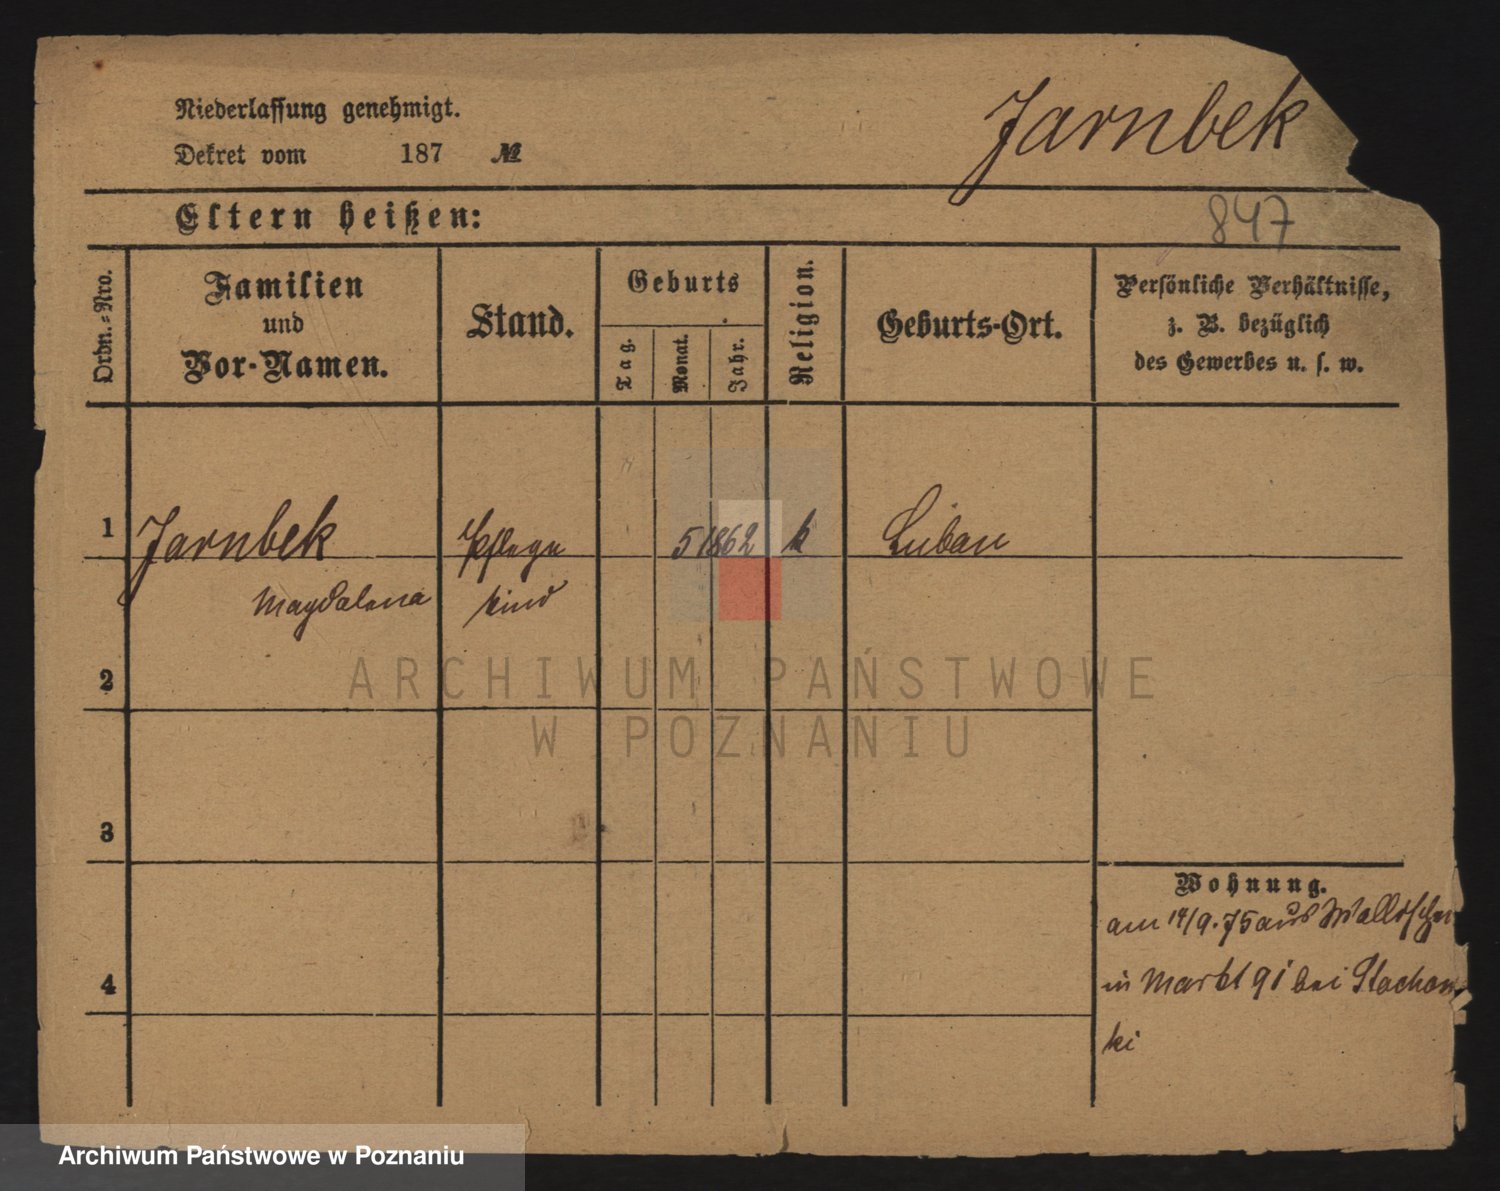 Niederlassung genehmigt.
Dekret vom 187 №
Jarnbek
Eltern heißen:
847
Ordn.-Nro.
Familien
und
Vor-Namen.
Stand.
Geburts
Tag.
Monat.
Jahr.
Religion.
Geburts-Ort.
Persönliche Verhältnisse,
z. B. bezüglich
des Gewerbes u. s. w.
1 Jarnbek Pflege 5 1862 k Luban
Magdalena kind
2
ARCHIWUM PAŃSTWOWE
W POZNANIU
3
Wohnung.
am 14/9.75 aus
4
in Markt 91 bei Stachow
ki
Archiwum Państwowe w Poznaniu